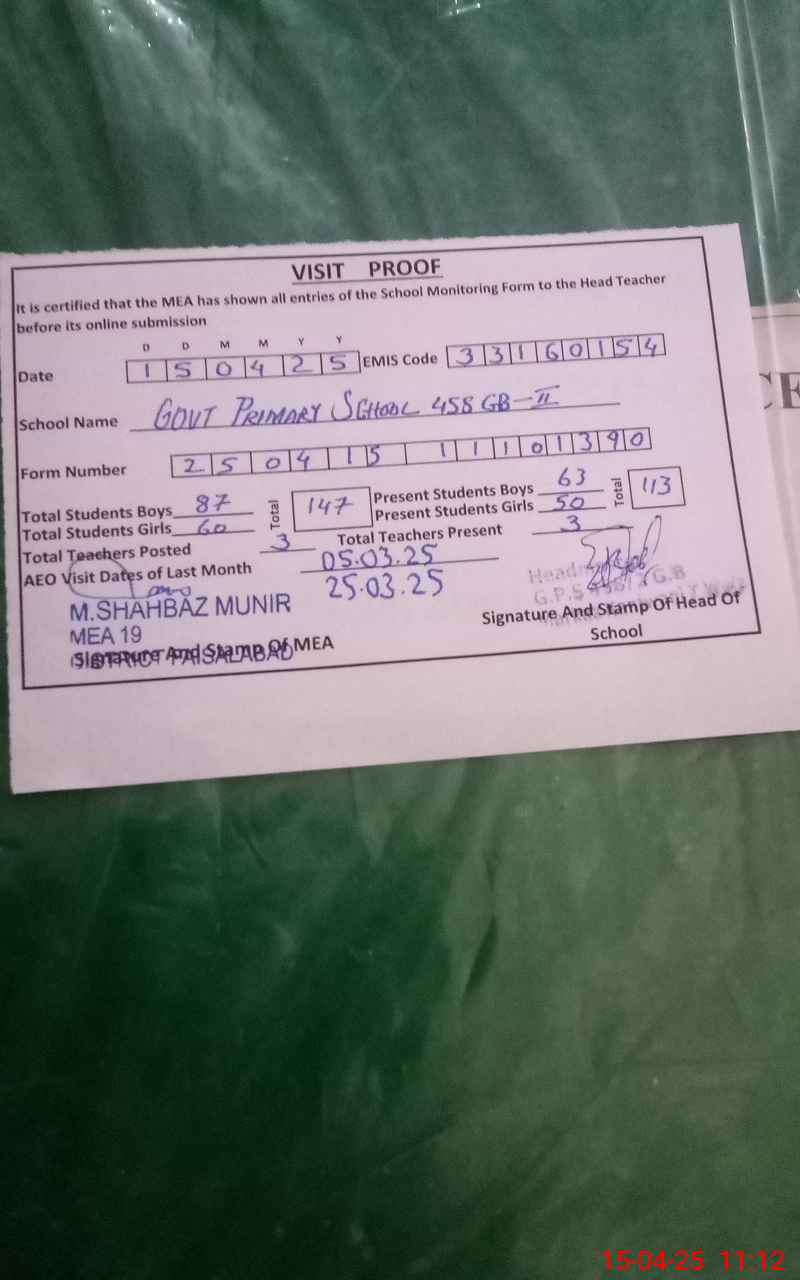 VISIT PROOF
It is certified that the MEA has shown all entries of the School Monitoring Form to the Head Teacher
before its online submission
D D M M Y Y
Date 1 5 0 4 2 5 EMIS Code 3 3 1 6 0 1 5 4
School Name GOVT PRIMARY SCHOOL 458 GB-II
Form Number 2 5 0 4 1 5 1 1 1 0 1 3 9 0
Total Students Boys 87 Total 147 Present Students Boys 63 Total 113
Total Students Girls 60 Present Students Girls 50
Total Teachers Posted 3 Total Teachers Present 3
AEO Visit Dates of Last Month 05.03.25
25.03.25
M.SHAHBAZ MUNIR
MEA 19
DISTRICT FAISALABAD
Signature And Stamp Of MEA
G.P.S
G.B
Signature And Stamp Of Head Of
School
CE
15-04-25 11:12